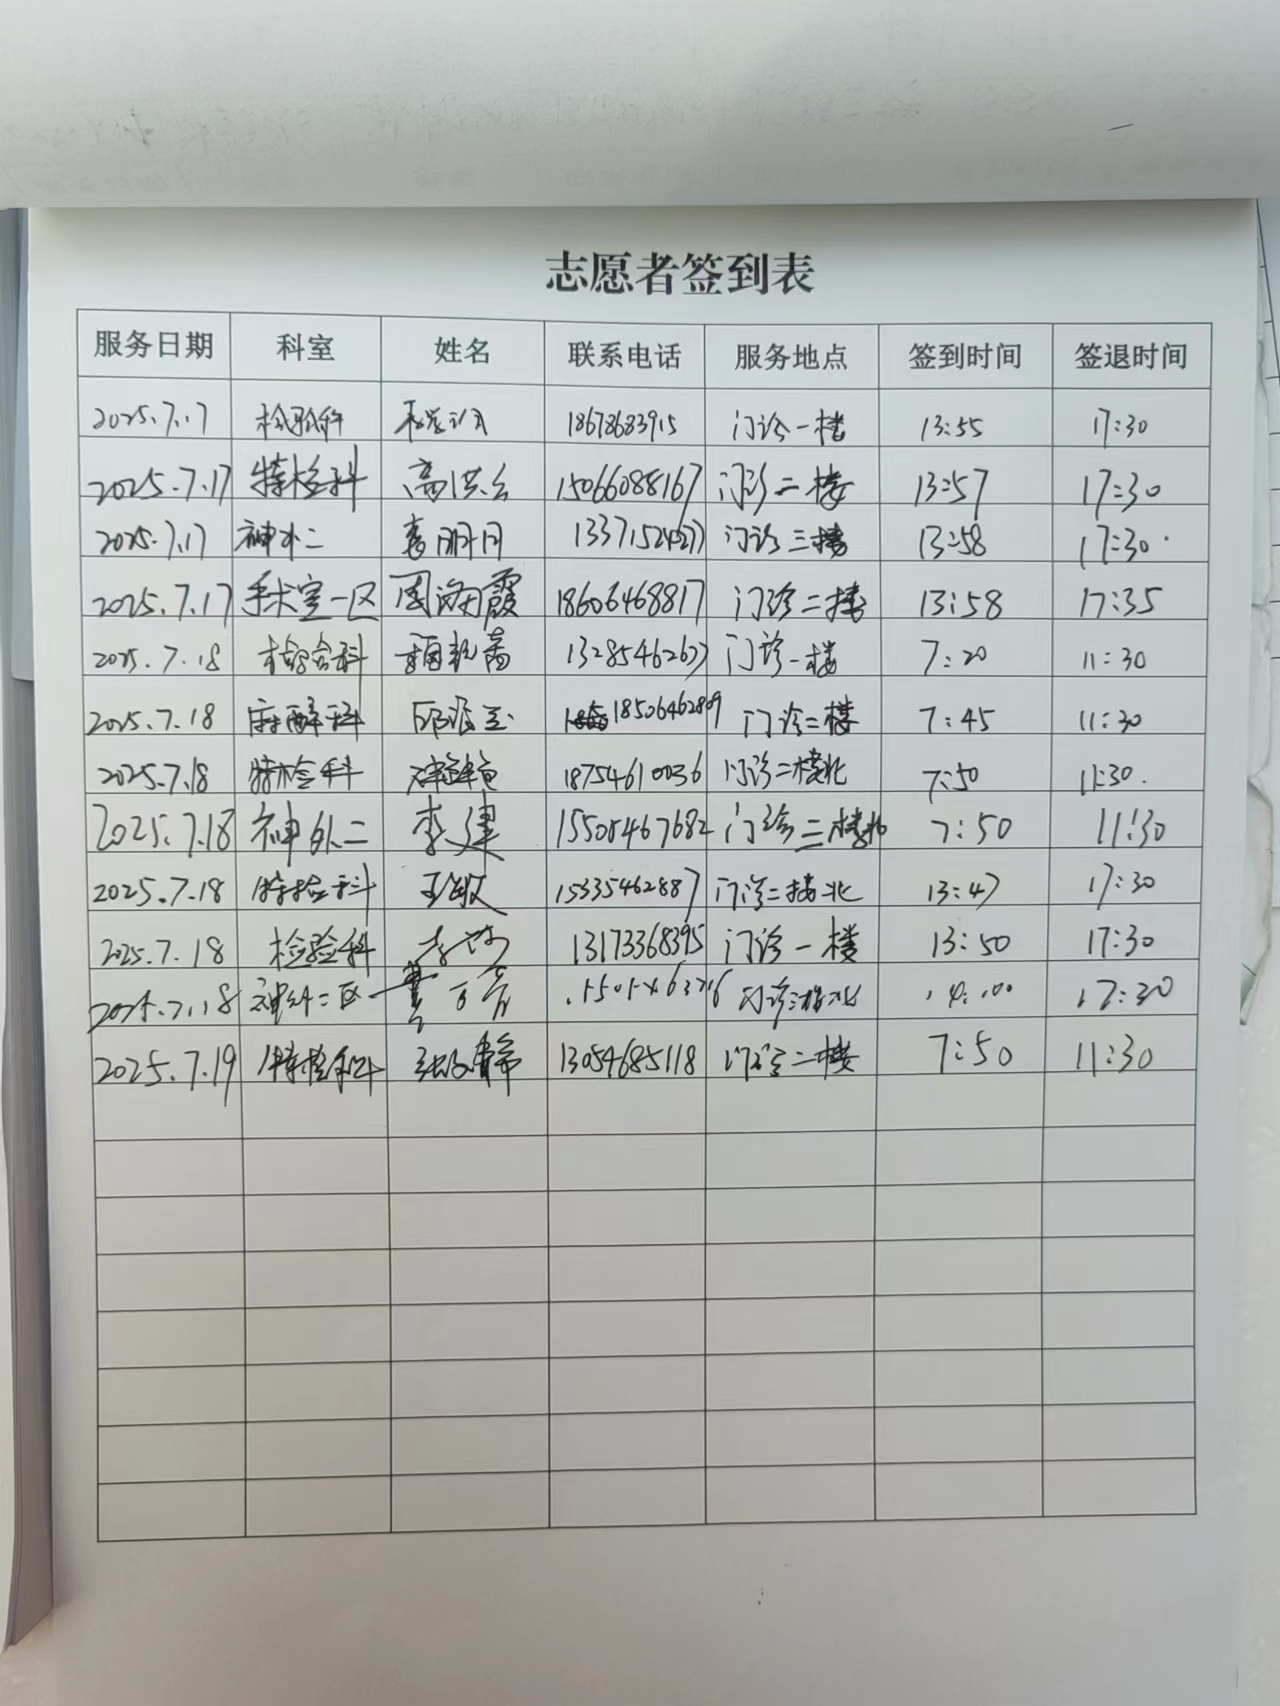 志愿者签到表
服务日期 科室 姓名 联系电话 服务地点 签到时间 签退时间
2025.7.17 检验科 18678683915 门诊一楼 13:55 17:30
2025.7.17 特检科 高洪云 15066088167 门诊二楼 13:57 17:30
2025.7.17 神外二 明月 门诊三楼 13:58 17:30
2025.7.17 手术室一区 周海霞 18606468817 门诊二楼 13:58 17:35
2025.7.18 检验科 13285462677 门诊一楼 7:20 11:30
2025.7.18 麻醉科 18506462809 门诊二楼 7:45 11:30
2025.7.18 特检科 18754610036 门诊二楼北 7:50 11:30
2025.7.18 神外二 李建 15505467682 门诊三楼北 7:50 11:30
2025.7.18 特检科 王敏 15335462887 门诊二楼北 13:47 17:30
2025.7.18 检验科 13173368395 门诊一楼 13:50 17:30
2025.7.18 神外二区 门诊三楼北 14:00 17:30
2025.7.19 特检科 静 13054685118 门诊二楼 7:50 11:30